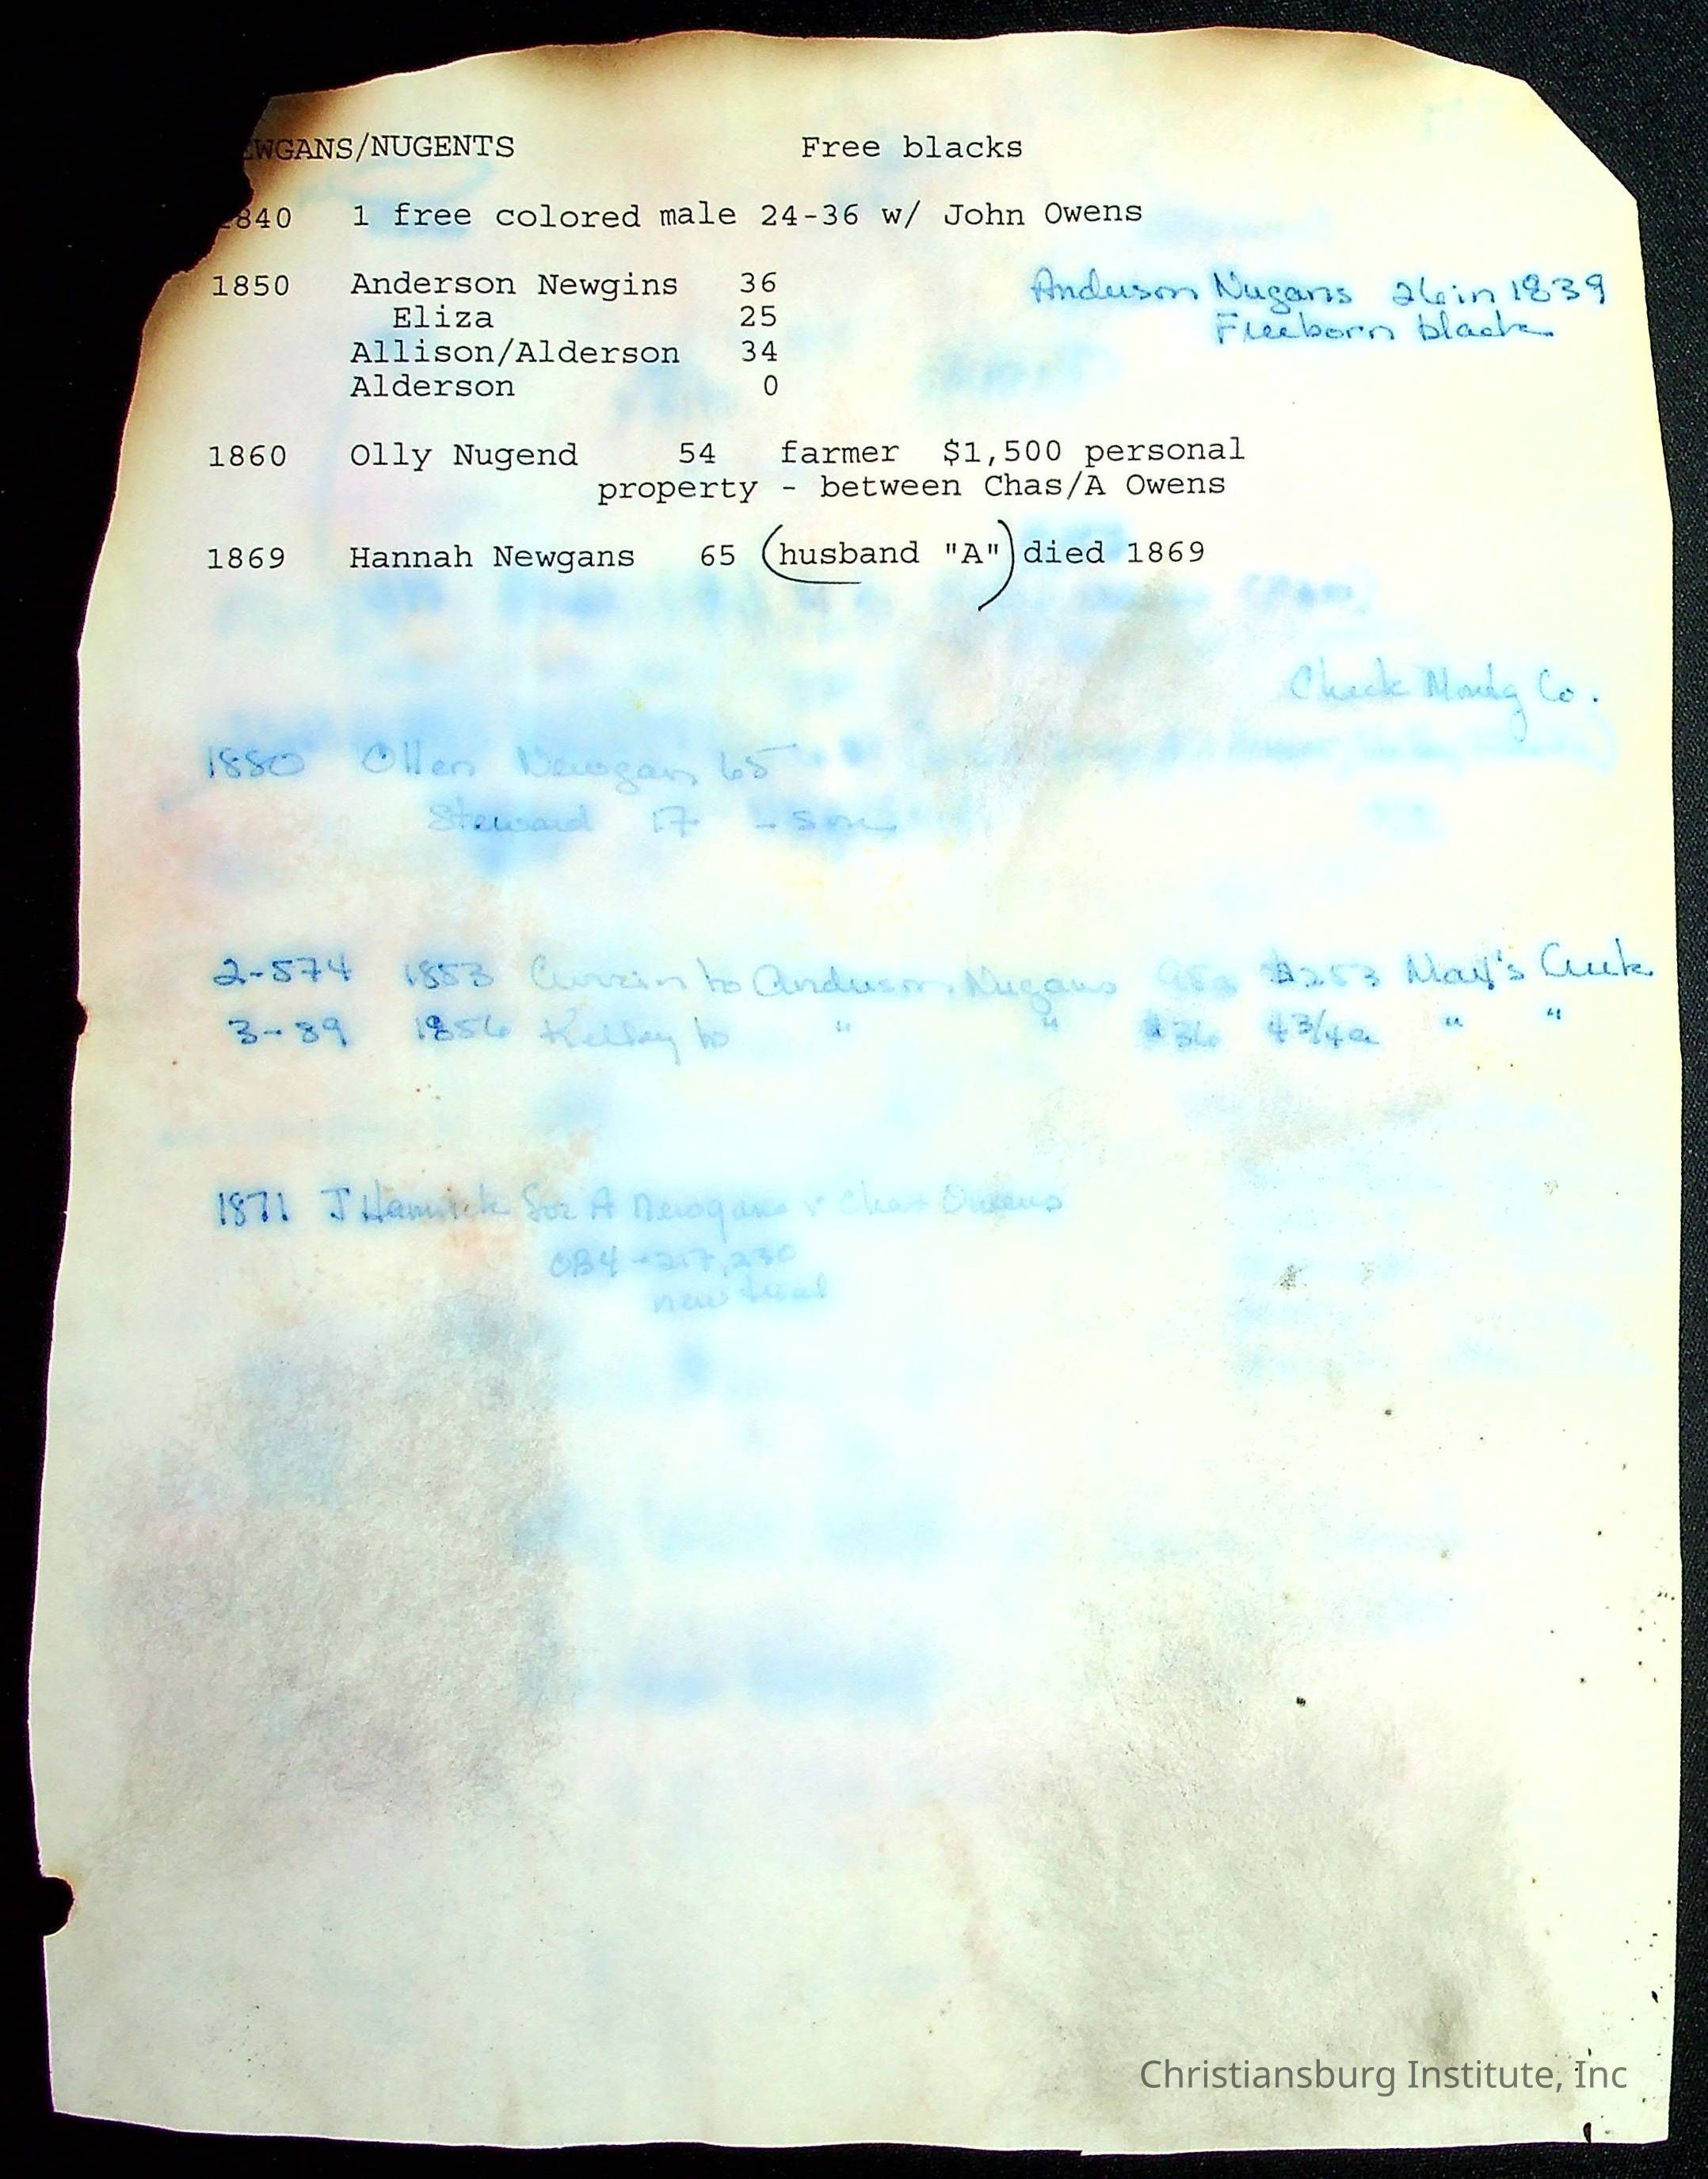 EWGANS/NUGENTS Free blacks
1840 1 free colored male 24-36 w/ John Owens
1850 Anderson Newgins 36
Anderson Nugans 26 in 1839
Eliza 25
Freeborn black
Allison/Alderson 34
Alderson 0
1860 Olly Nugend 54 farmer $1,500 personal
property - between Chas/A Owens
1869 Hannah Newgans 65 (husband "A") died 1869
Check Montg Co.
1880 Ollen Newgans 65
Steward 17 - son
2-574 1853 Currin to Anderson Nugans $253 May's Creek
3-89 1856 Kelley to " " $36 43/4a " "
1871 J Hamrick for A Newgans v Chas Owens
OB4-217,230
new trial
Christiansburg Institute, Inc